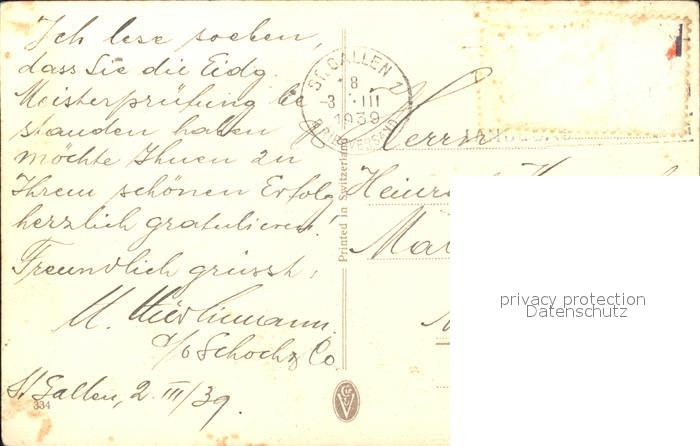 Ich lese soeben,
dass Sie die Eidg.
Meisterprüfung be
standen haben
möchte Ihnen zu
Ihrem schönen Erfolg
herzlich gratulieren!
Freundlich grüsst,
M.
c/o Schoch & Co.
St Gallen, 2. III/39.
334
Printed in Switzerland
ST. GALLEN 2
8
-3. III
1939
BRIEFVERSAND
Herrn
privacy protection
Datenschutz